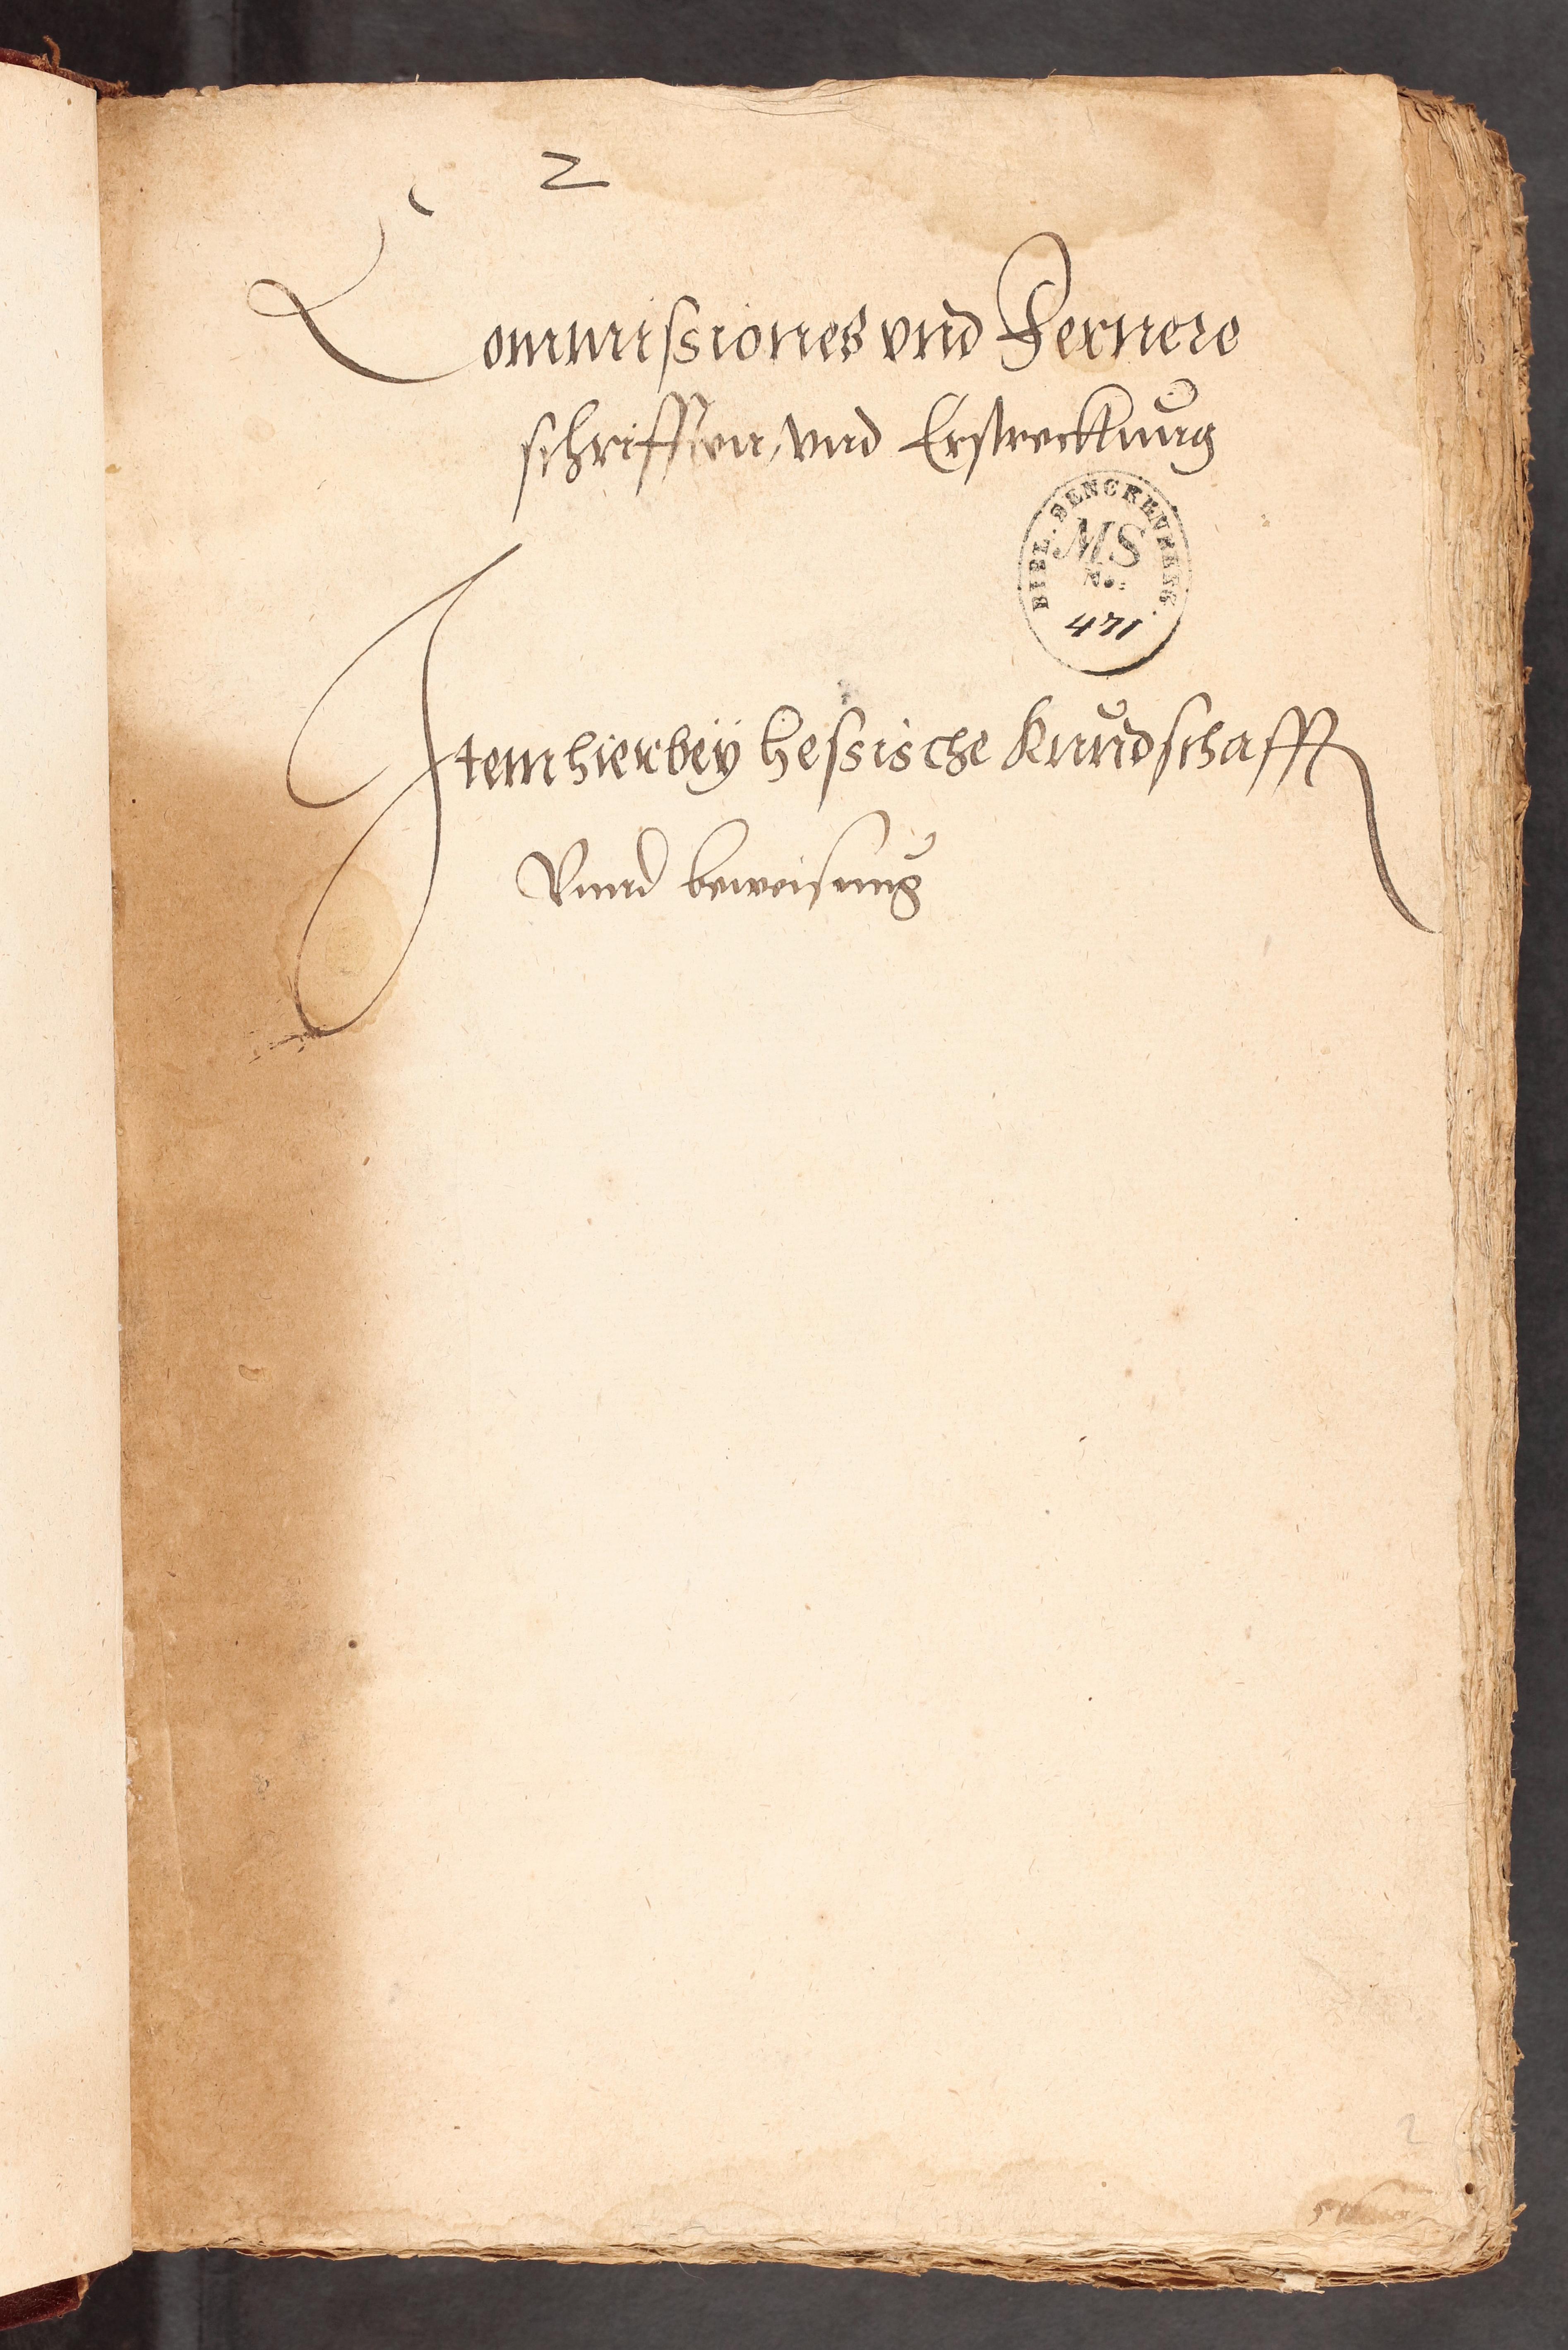 2
Commissiones vnd Fernere
schrifften, vnd Erstreckung
BIBL. SENCKENBERG.
MS
No.
471
Item hierbeÿ hessische Kundschafft
Vnnd beweisung
2